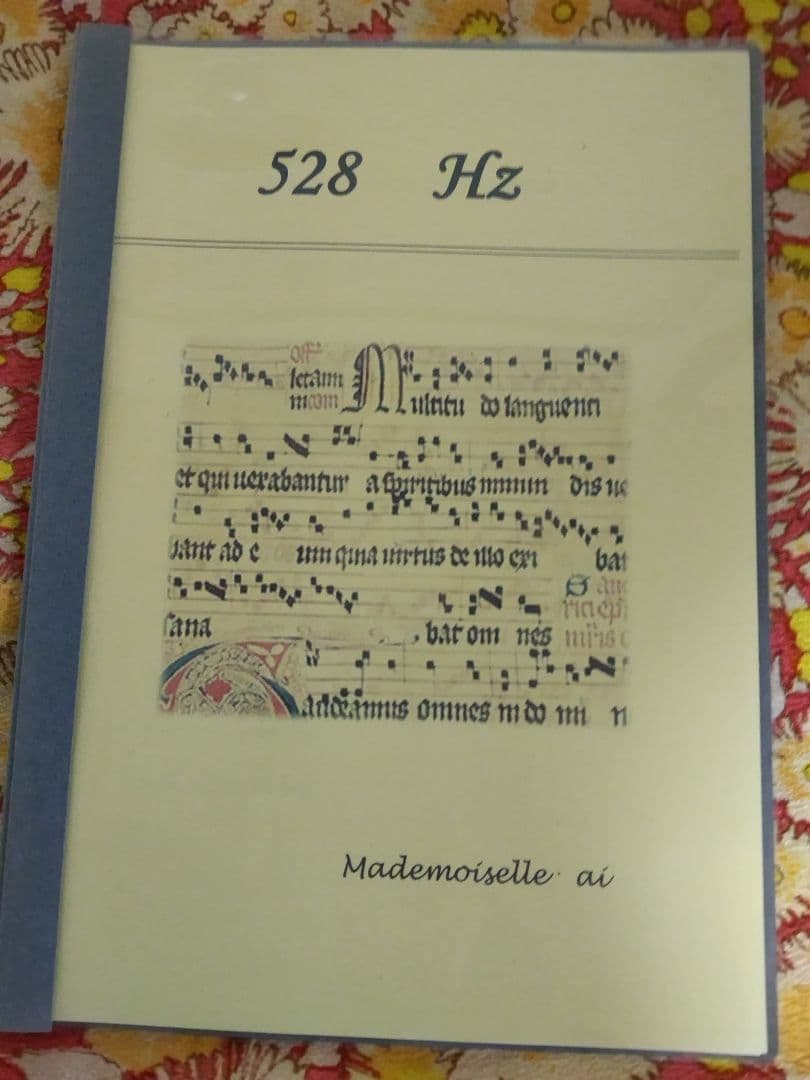 528 Hz
Off
letamı M ultitu do languenti
et qui uexabantur a spiritibus inmun dis ue
bant ad e um quia uirtus de illo exi bat
sana bat om nes
audeamus omnes in do mi n
Mademoiselle ai